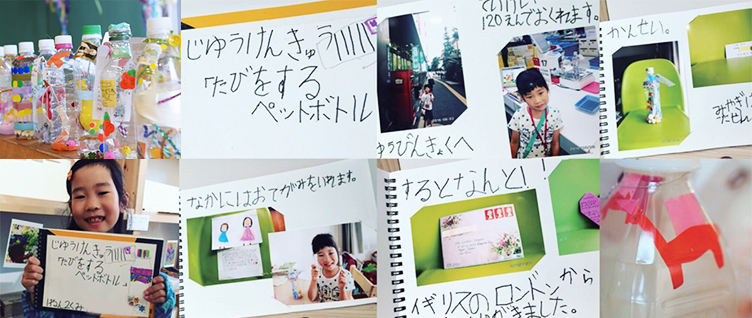 じゆうけんきゅう
たびをする
ペットボトル
120えんでおくれます。
ゆうびんきょくへ
かんせい。
みやぎけ
じゆうけんきゅう
たびをする
ペットボトル
なかにはおてがみをいれます。
するとなんと！
イギリスのロンドンから
がきました。